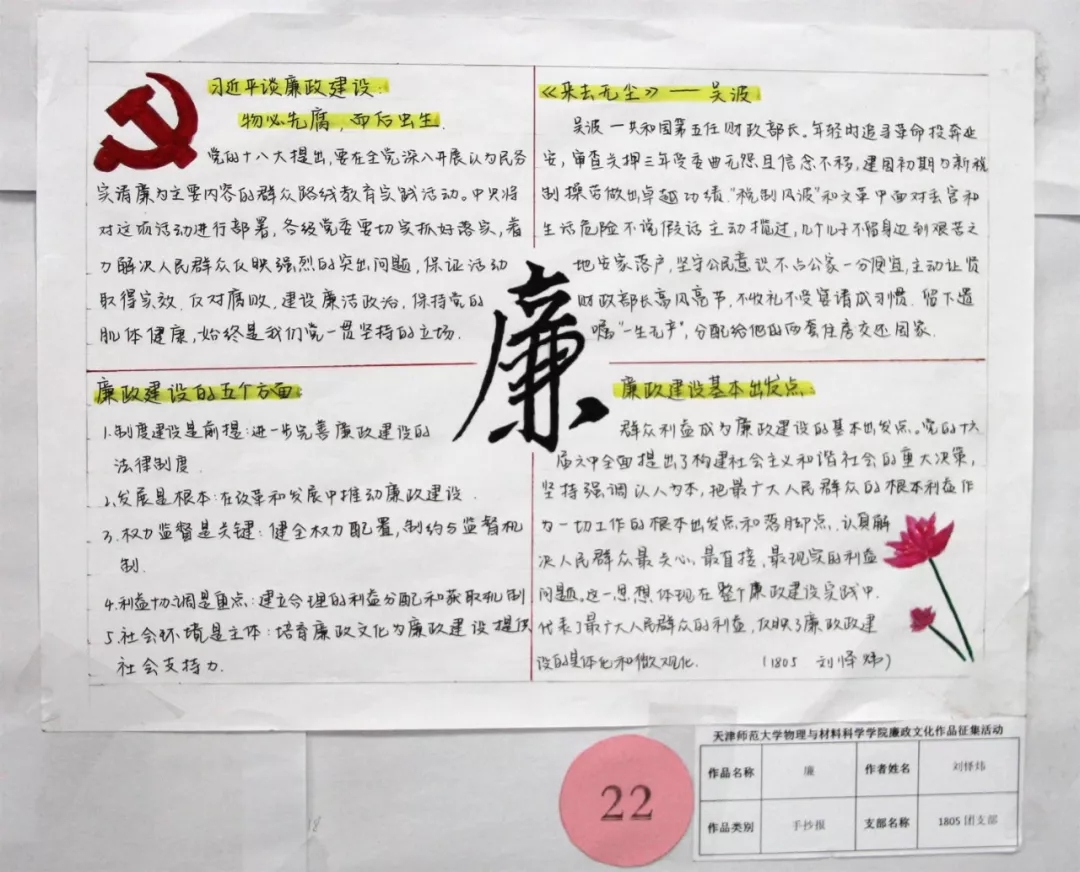 习近平谈廉政建设:
物必先腐,而后虫生.
党的十八大提出,要在全党深入开展以为民务
实清廉为主要内容的群众路线教育实践活动。中央将
对这项活动进行部署,各级党委要切实抓好落实,着
力解决人民群众反映强烈的突出问题,保证活动
取得实效.反对腐败,建设廉洁政治,保持党的
肌体健康,始终是我们党一贯坚持的立场.
《来去无尘》——吴波
吴波一共和国第五任财政部长。年轻时追寻革命投奔延
安,审查关押三年受委曲无怨且信念不移,建国初期为新税
制操劳做出卓越功绩."税制风波"和文革中面对丢官和
生活危险不说假话主动揽过,几个儿子不留身边到艰苦之
地安家落户,坚守公民意识不占公家一分便宜,主动让贤
财政部长高风亮节,不收礼不受宴请成习惯.留下遗
嘱"一生无产",分配给他的两套住房交还国家.
廉
廉政建设的五个方面
1.制度建设是前提:进一步完善廉政建设的
法律制度.
2.发展是根本:在改革和发展中推动廉政建设.
3.权力监督是关键:健全权力配置,制约与监督机
制.
4.利益协调是重点:建立合理的利益分配和获取机制
5.社会环境是主体:培育廉政文化为廉政建设提供
社会支持力.
廉政建设基本出发点.
群众利益成为廉政建设的基本出发点。党的十六
届六中全面提出了构建社会主义和谐社会的重大决策,
坚持强调以人为本,把最广大人民群众的根本利益作
为一切工作的根本出发点和落脚点.认真解
决人民群众最关心、最直接、最现实的利益
问题。这一思想体现在整个廉政建设实践中.
代表了最广大人民群众的利益,反映了廉政政建
设的具体化和微观化.
(1805 刘怿炜)
22
天津师范大学物理与材料科学学院廉政文化作品征集活动
作品名称 廉 作者姓名 刘怿炜
作品类别 手抄报 支部名称 1805团支部